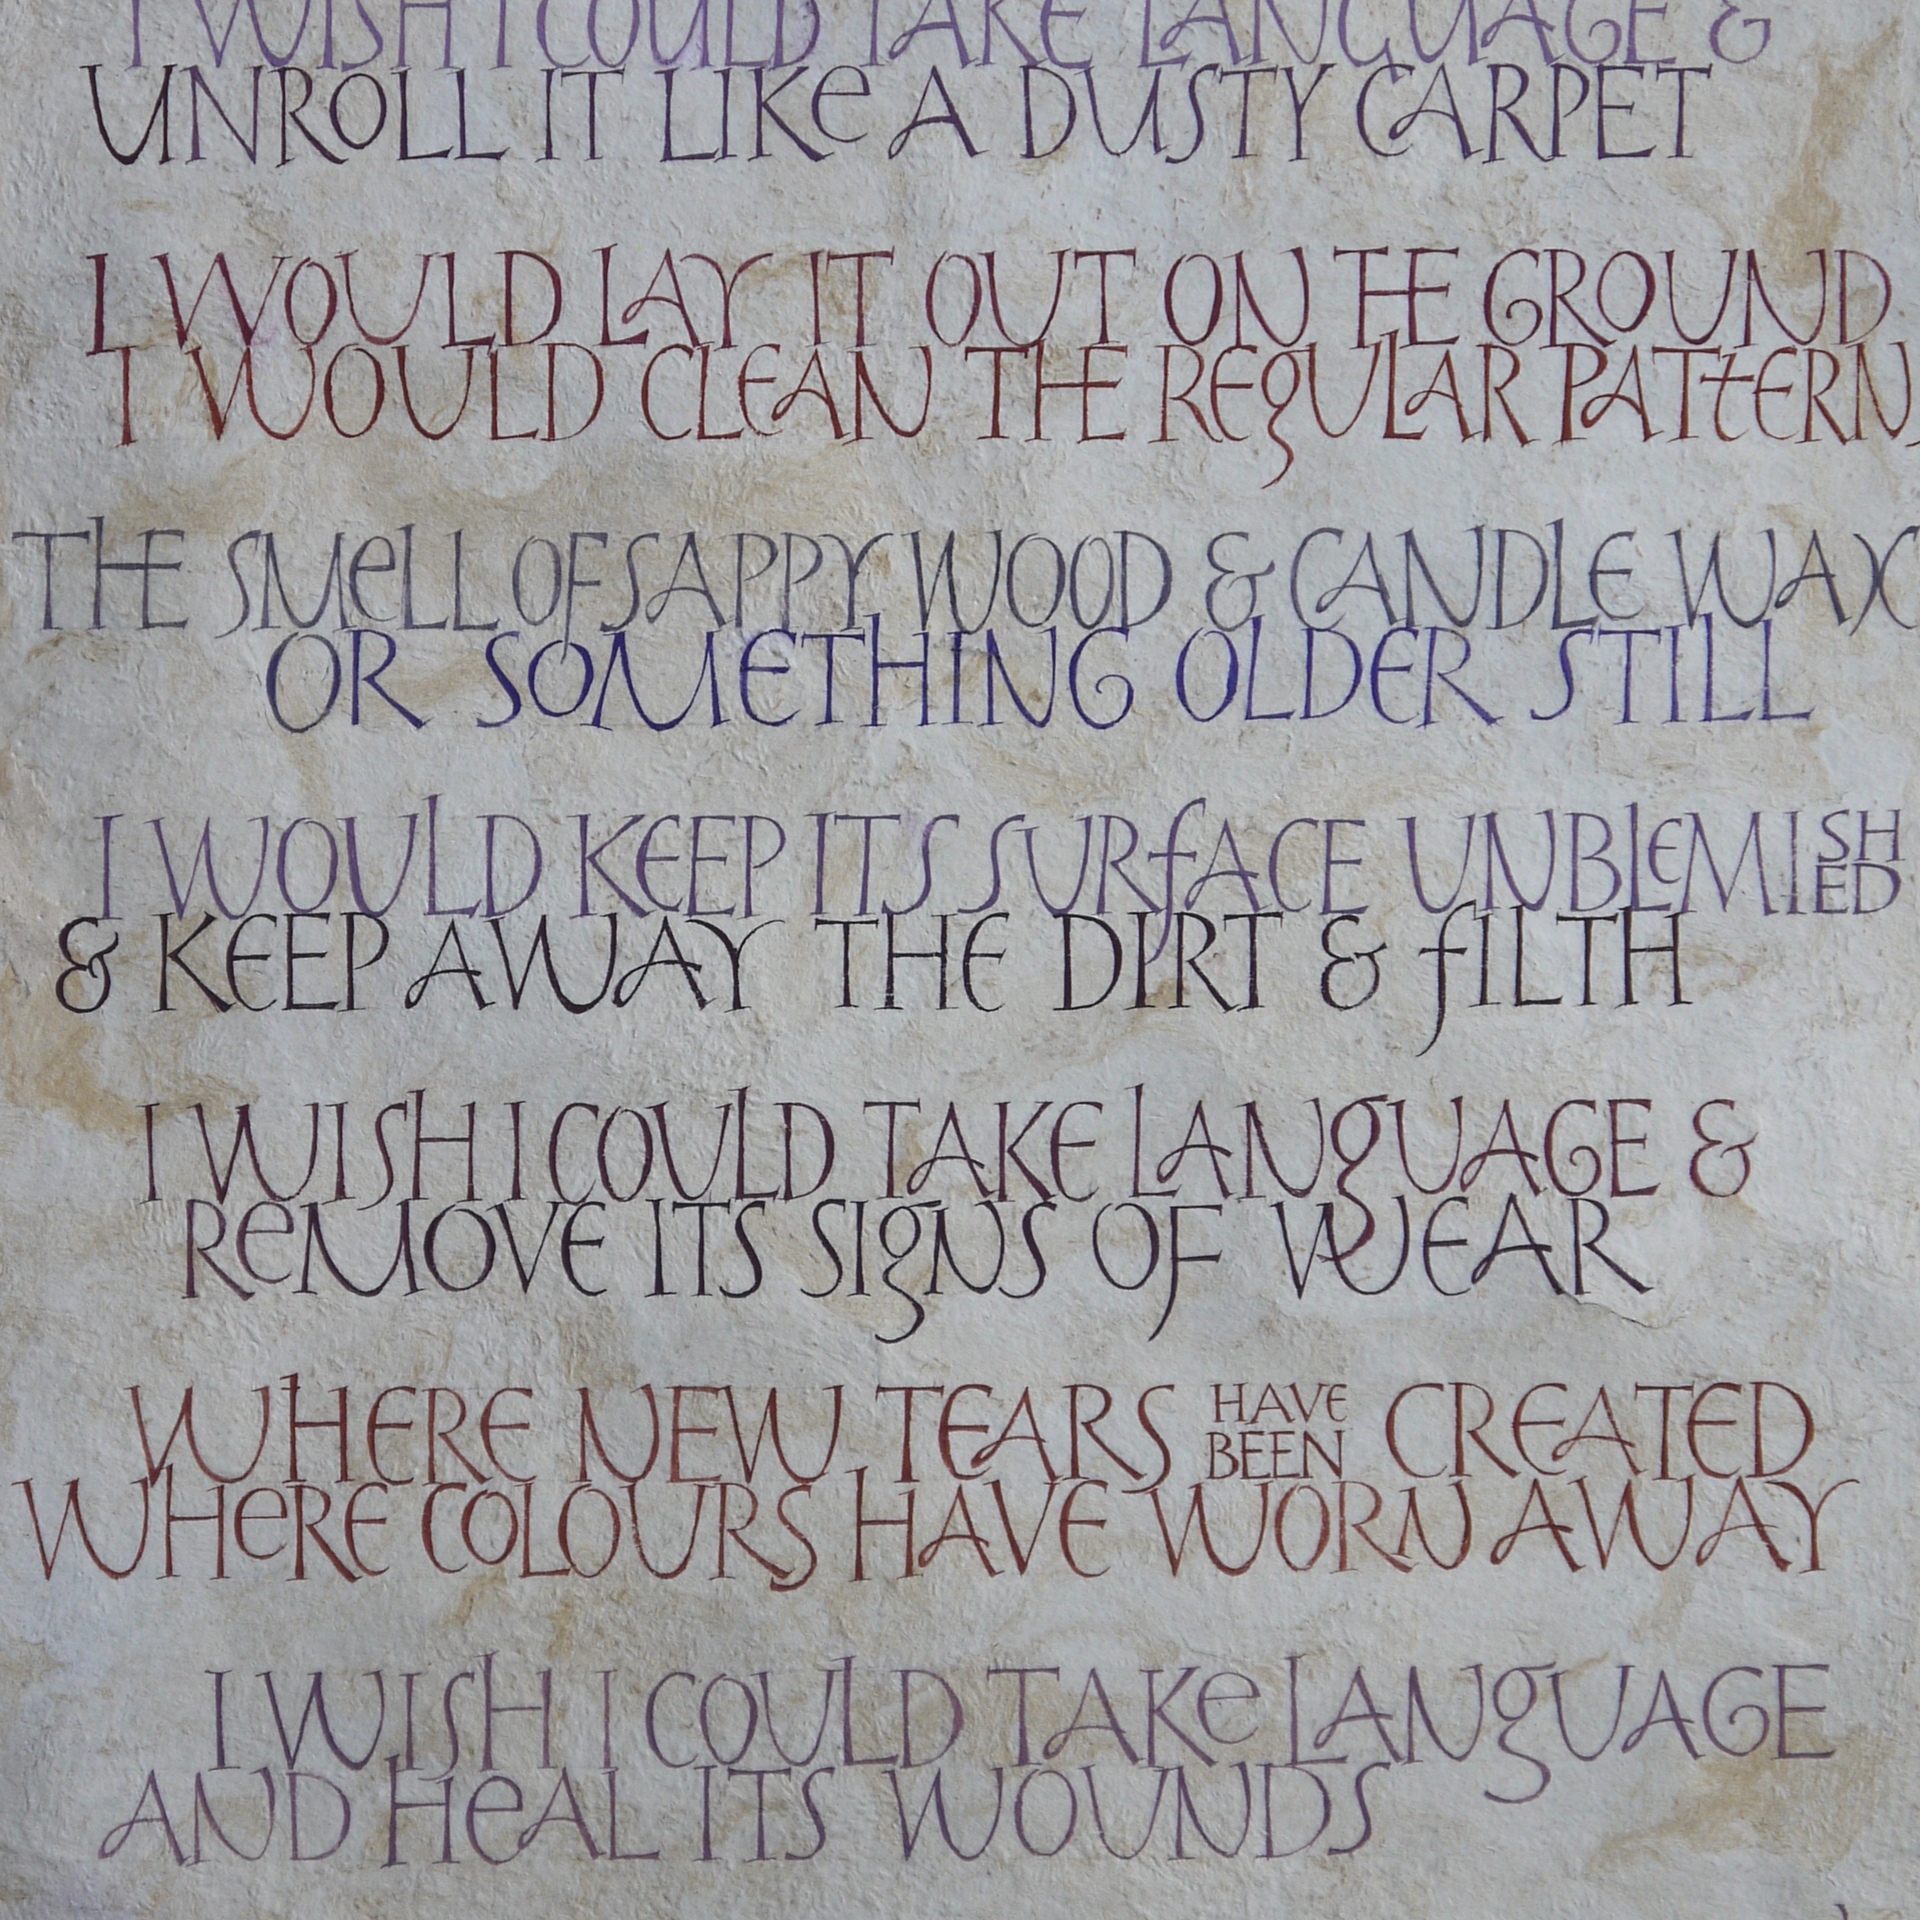 I WISH I COULD TAKE LANGUAGE &
UNROLL IT LIKe A DUSTY CARPET
I WOULD LAY IT OUT ON THE GROUND
I WOULD CLEAN THE REgULAR PATTERN,
THE SMeLL OF SAPPY WOOD & CANDLE WAX
OR SOMETHING OLDER STILL
I WOULD KEEP ITS SURfACE UNBLEMISHED
& KEEP AWAY THE DIRT & fILTH
I WISH I COULD TAKE LANgUAGE &
ReMOVE ITS SIgNS OF WEAR
WHERE NEW TEARS HAVE BEEN CREATED
WHeRE COLOURS HAVE WORN AWAY
I WISH I COULD TAKe LANgUAGE
AND HeAL ITS WOUNDS